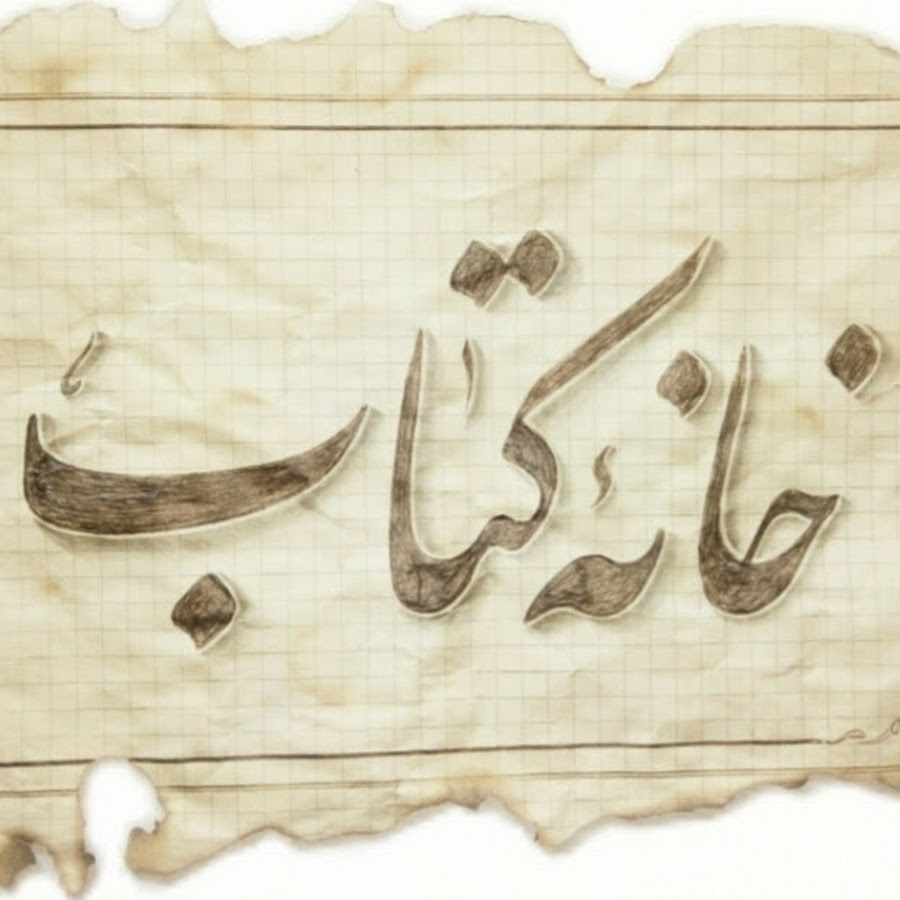 خانهٔ کتاب